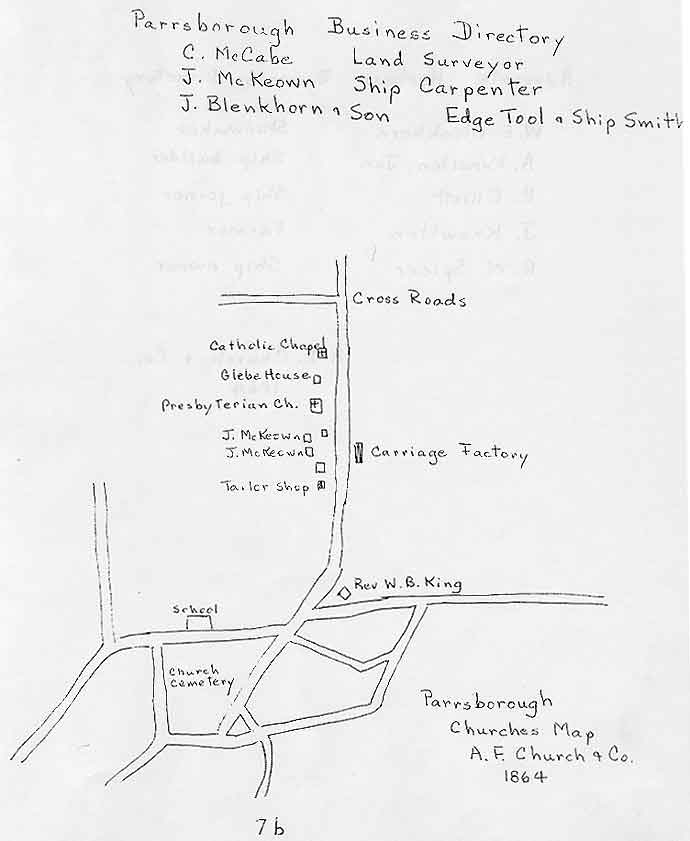 Parrsborough Business Directory
C. McCabe Land Surveyor
J. McKeown Ship Carpenter
J. Blenkhorn & Son Edge Tool & Ship Smith
Cross Roads
Catholic Chapel
Glebe House
Presbyterian Ch.
J. McKeown
J. McKeown
Carriage Factory
Tailor Shop
Rev W. B. King
School
Church
Cemetery
Parrsborough
Churches Map
A. F. Church & Co.
1864
7b